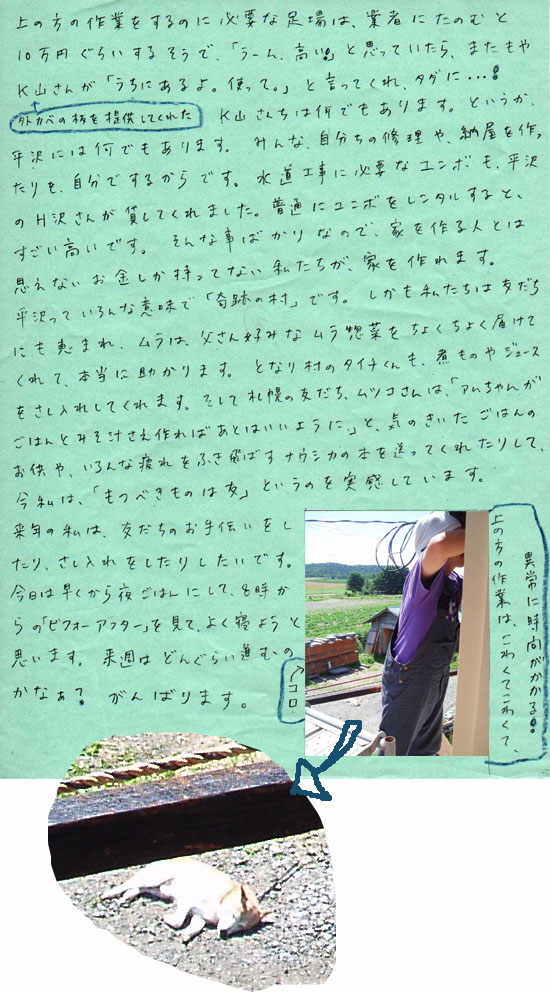 上の方の作業をするのに必要な足場は、業者にたのむと
10万円ぐらいするそうで、「うーん、高い!」と思っていたら、またもや
K山さんが「うちにあるよ。使って。」と言ってくれ、タダに…!
外カベの材を提供してくれた
K山さんちは何でもあります。というか、
平沢には何でもあります。みんな、自分ちの修理や、納屋を作っ
たりを、自分でするからです。水道工事に必要なユンボも、平沢
のH沢さんが貸してくれました。普通にユンボをレンタルすると、
すごい高いです。そんな事ばかりなので、家を作る人とは
思えないお金しか持ってない私たちが、家を作れます。
平沢っていろんな意味で「奇跡の村」です。しかも私たちは友だち
にも恵まれ、ムラは、父さん好みなムラ惣菜をちょくちょく届けて
くれて、本当に助かります。となり村のタイチくんも、煮ものやジュース
をさし入れしてくれます。そして札幌の友だち、ムツコさんは、「アムちゃんが
ごはんとみそ汁さえ作ればあとはいいように」と、気のきいたごはんの
お供や、いろんな疲れをふき飛ばすナウシカの本を送ってくれたりして、
今私は、「もつべきものは友」というのを実感しています。
来年の私は、友だちのお手伝いをし
たり、さし入れをしたりしたいです。
今日は早くから夜ごはんにして、8時か
らの「ビフォーアフター」を見て、よく寝ようと
思います。来週はどんぐらい進むの
かなぁ? がんばります。
↑コロ
上の方の作業は、こわくてこわくて、
異常に時間がかかる!